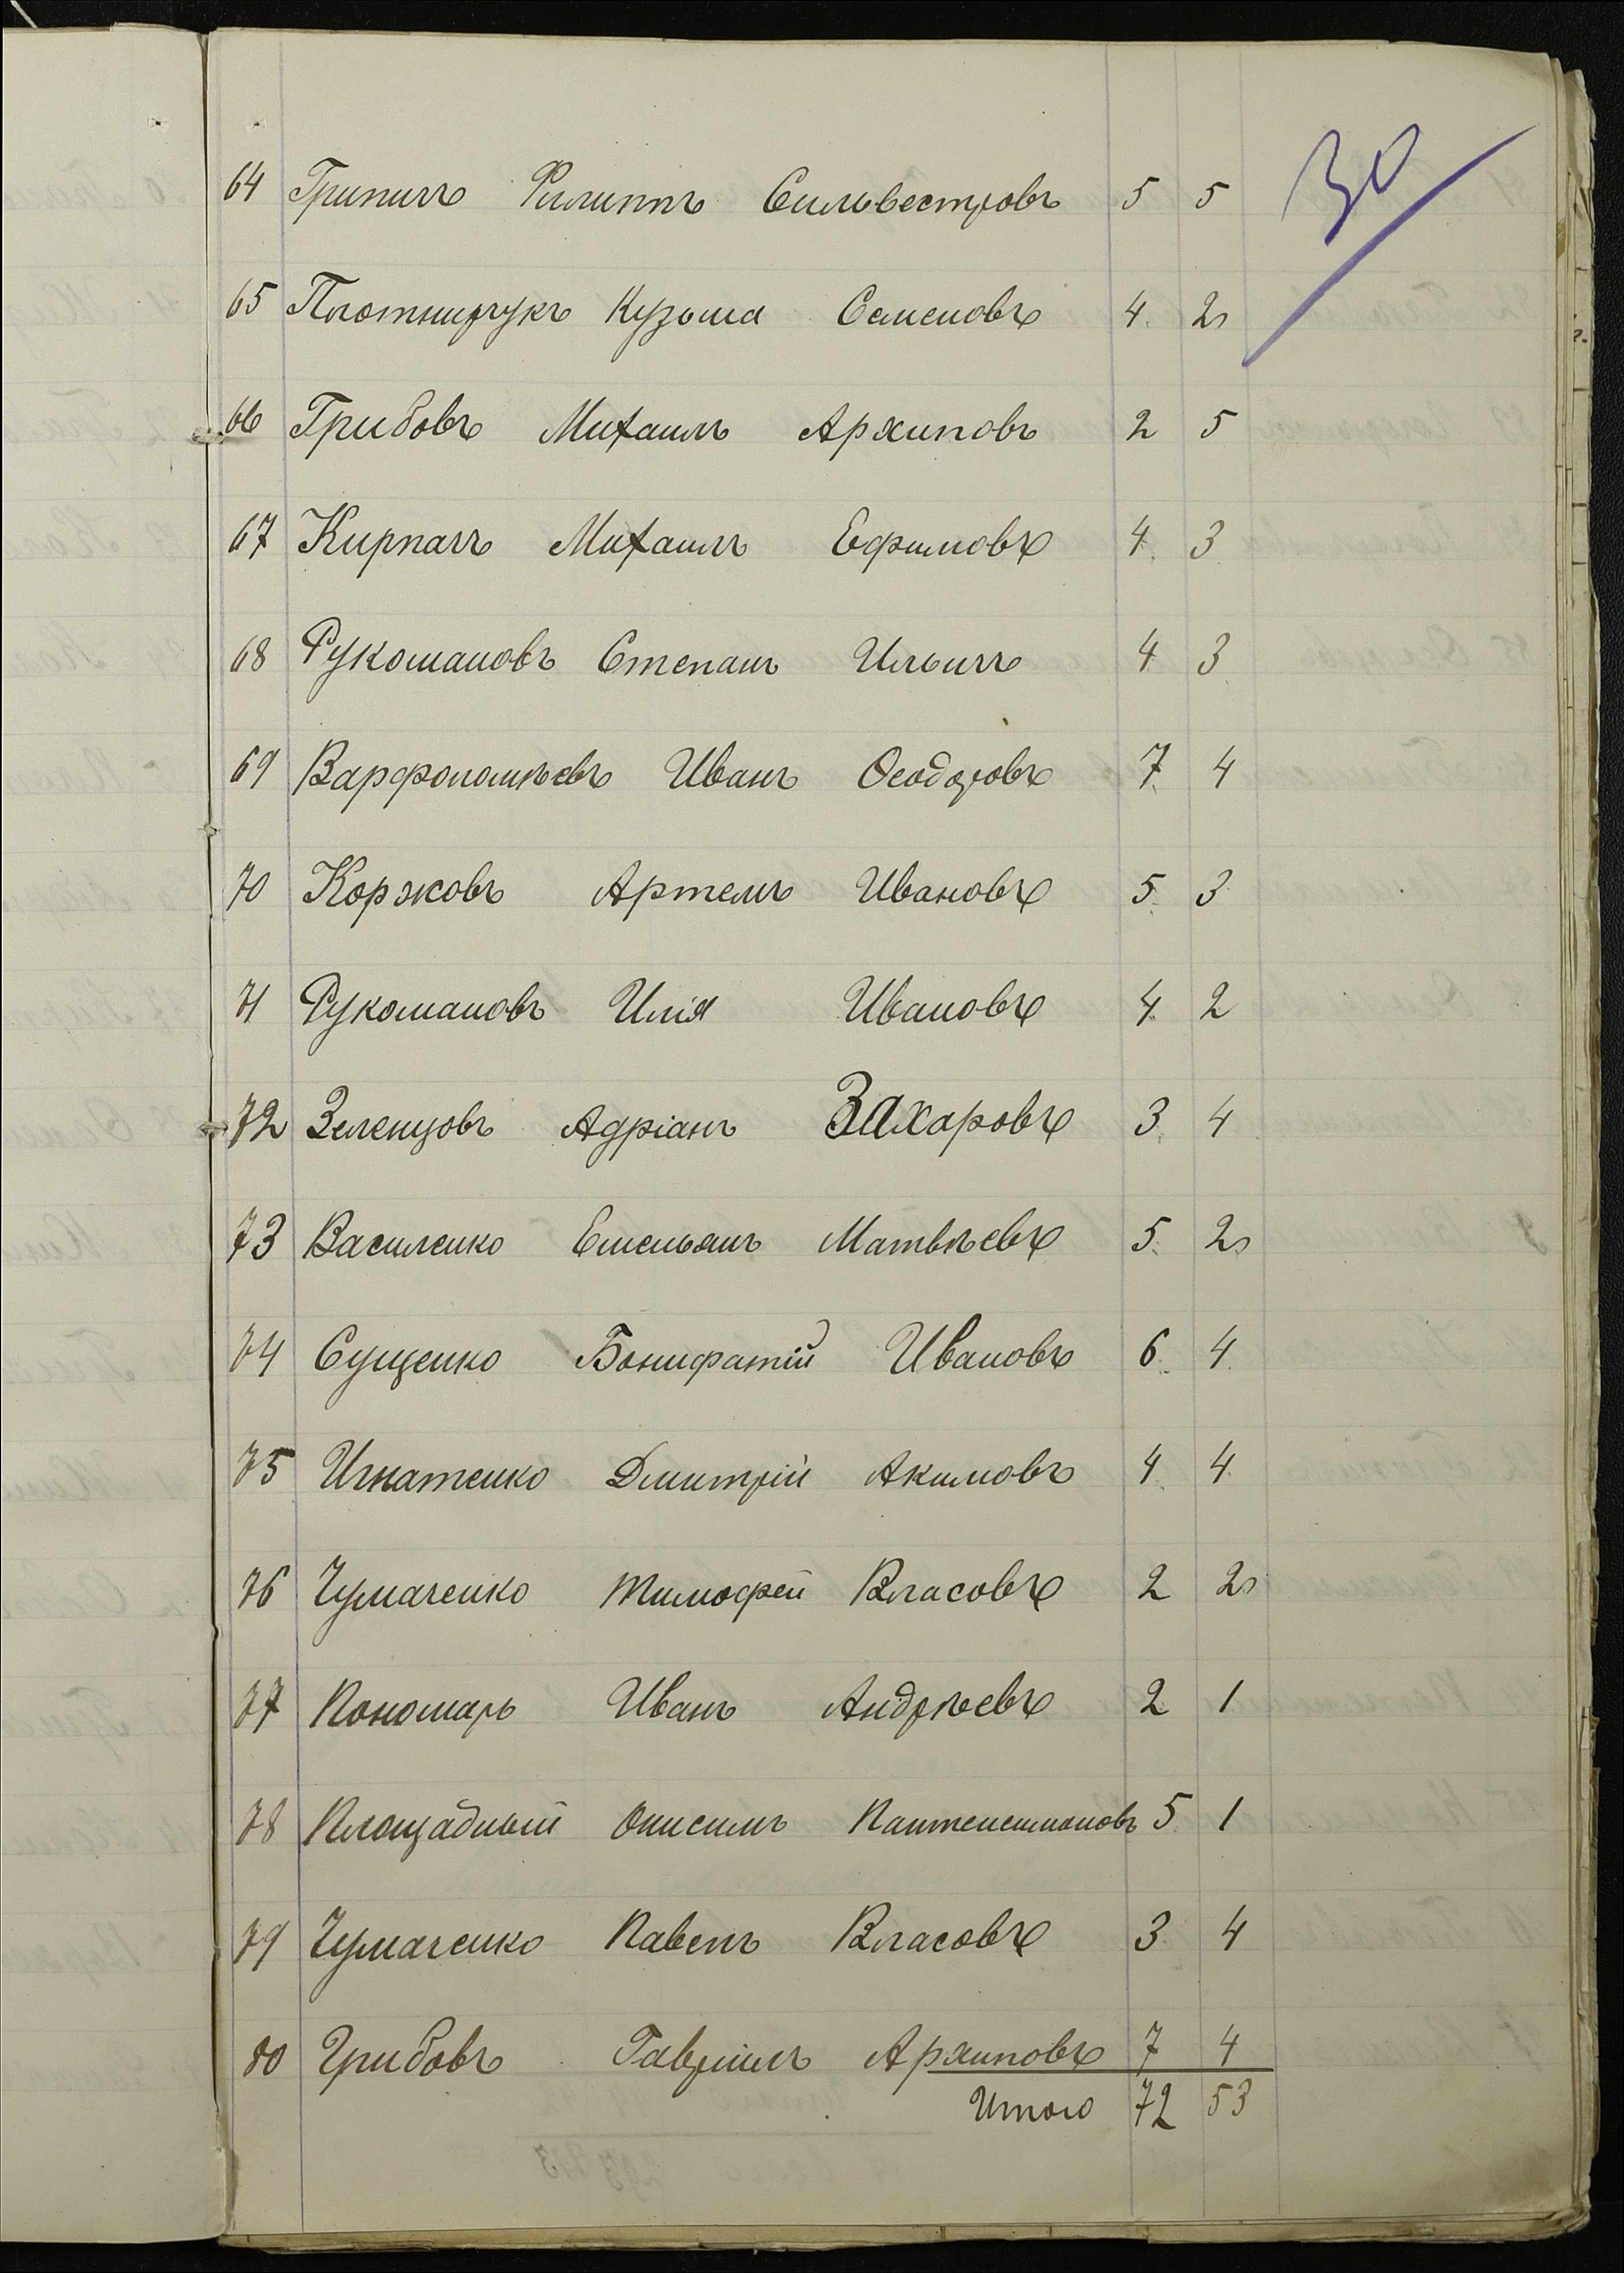 30
64 Грипичъ Филиппъ Сильвестровъ 5 5
65 Плотничукъ Кузьма Семеновъ 4 2
66 Грибовъ Михаилъ Архиповъ 2 5
67 Кирпачъ Михаилъ Ефимовъ 4 3
68 Рукомановъ Степанъ Ильичъ 4 3
69 Варфоломѣевъ Иванъ Ѳеодоровъ 7 4
70 Коржовъ Артемъ Ивановъ 5 3
71 Рукомановъ Илія Ивановъ 4 2
72 Зеленцовъ Адріанъ Захаровъ 3 4
73 Василенко Емельянъ Матвѣевъ 5 2
74 Сущенко Бонифатій Ивановъ 6 4
75 Игнатенко Дмитрій Акимовъ 4 4
76 Чумаченко Тимофей Власовъ 2 2
77 Пономарь Иванъ Андрѣевъ 2 1
78 Площадный Онисимъ 5 1
79 Чумаченко Павелъ Власовъ 3 4
80 Грибовъ Гавріилъ Архиповъ 7 4
Итого 72 53